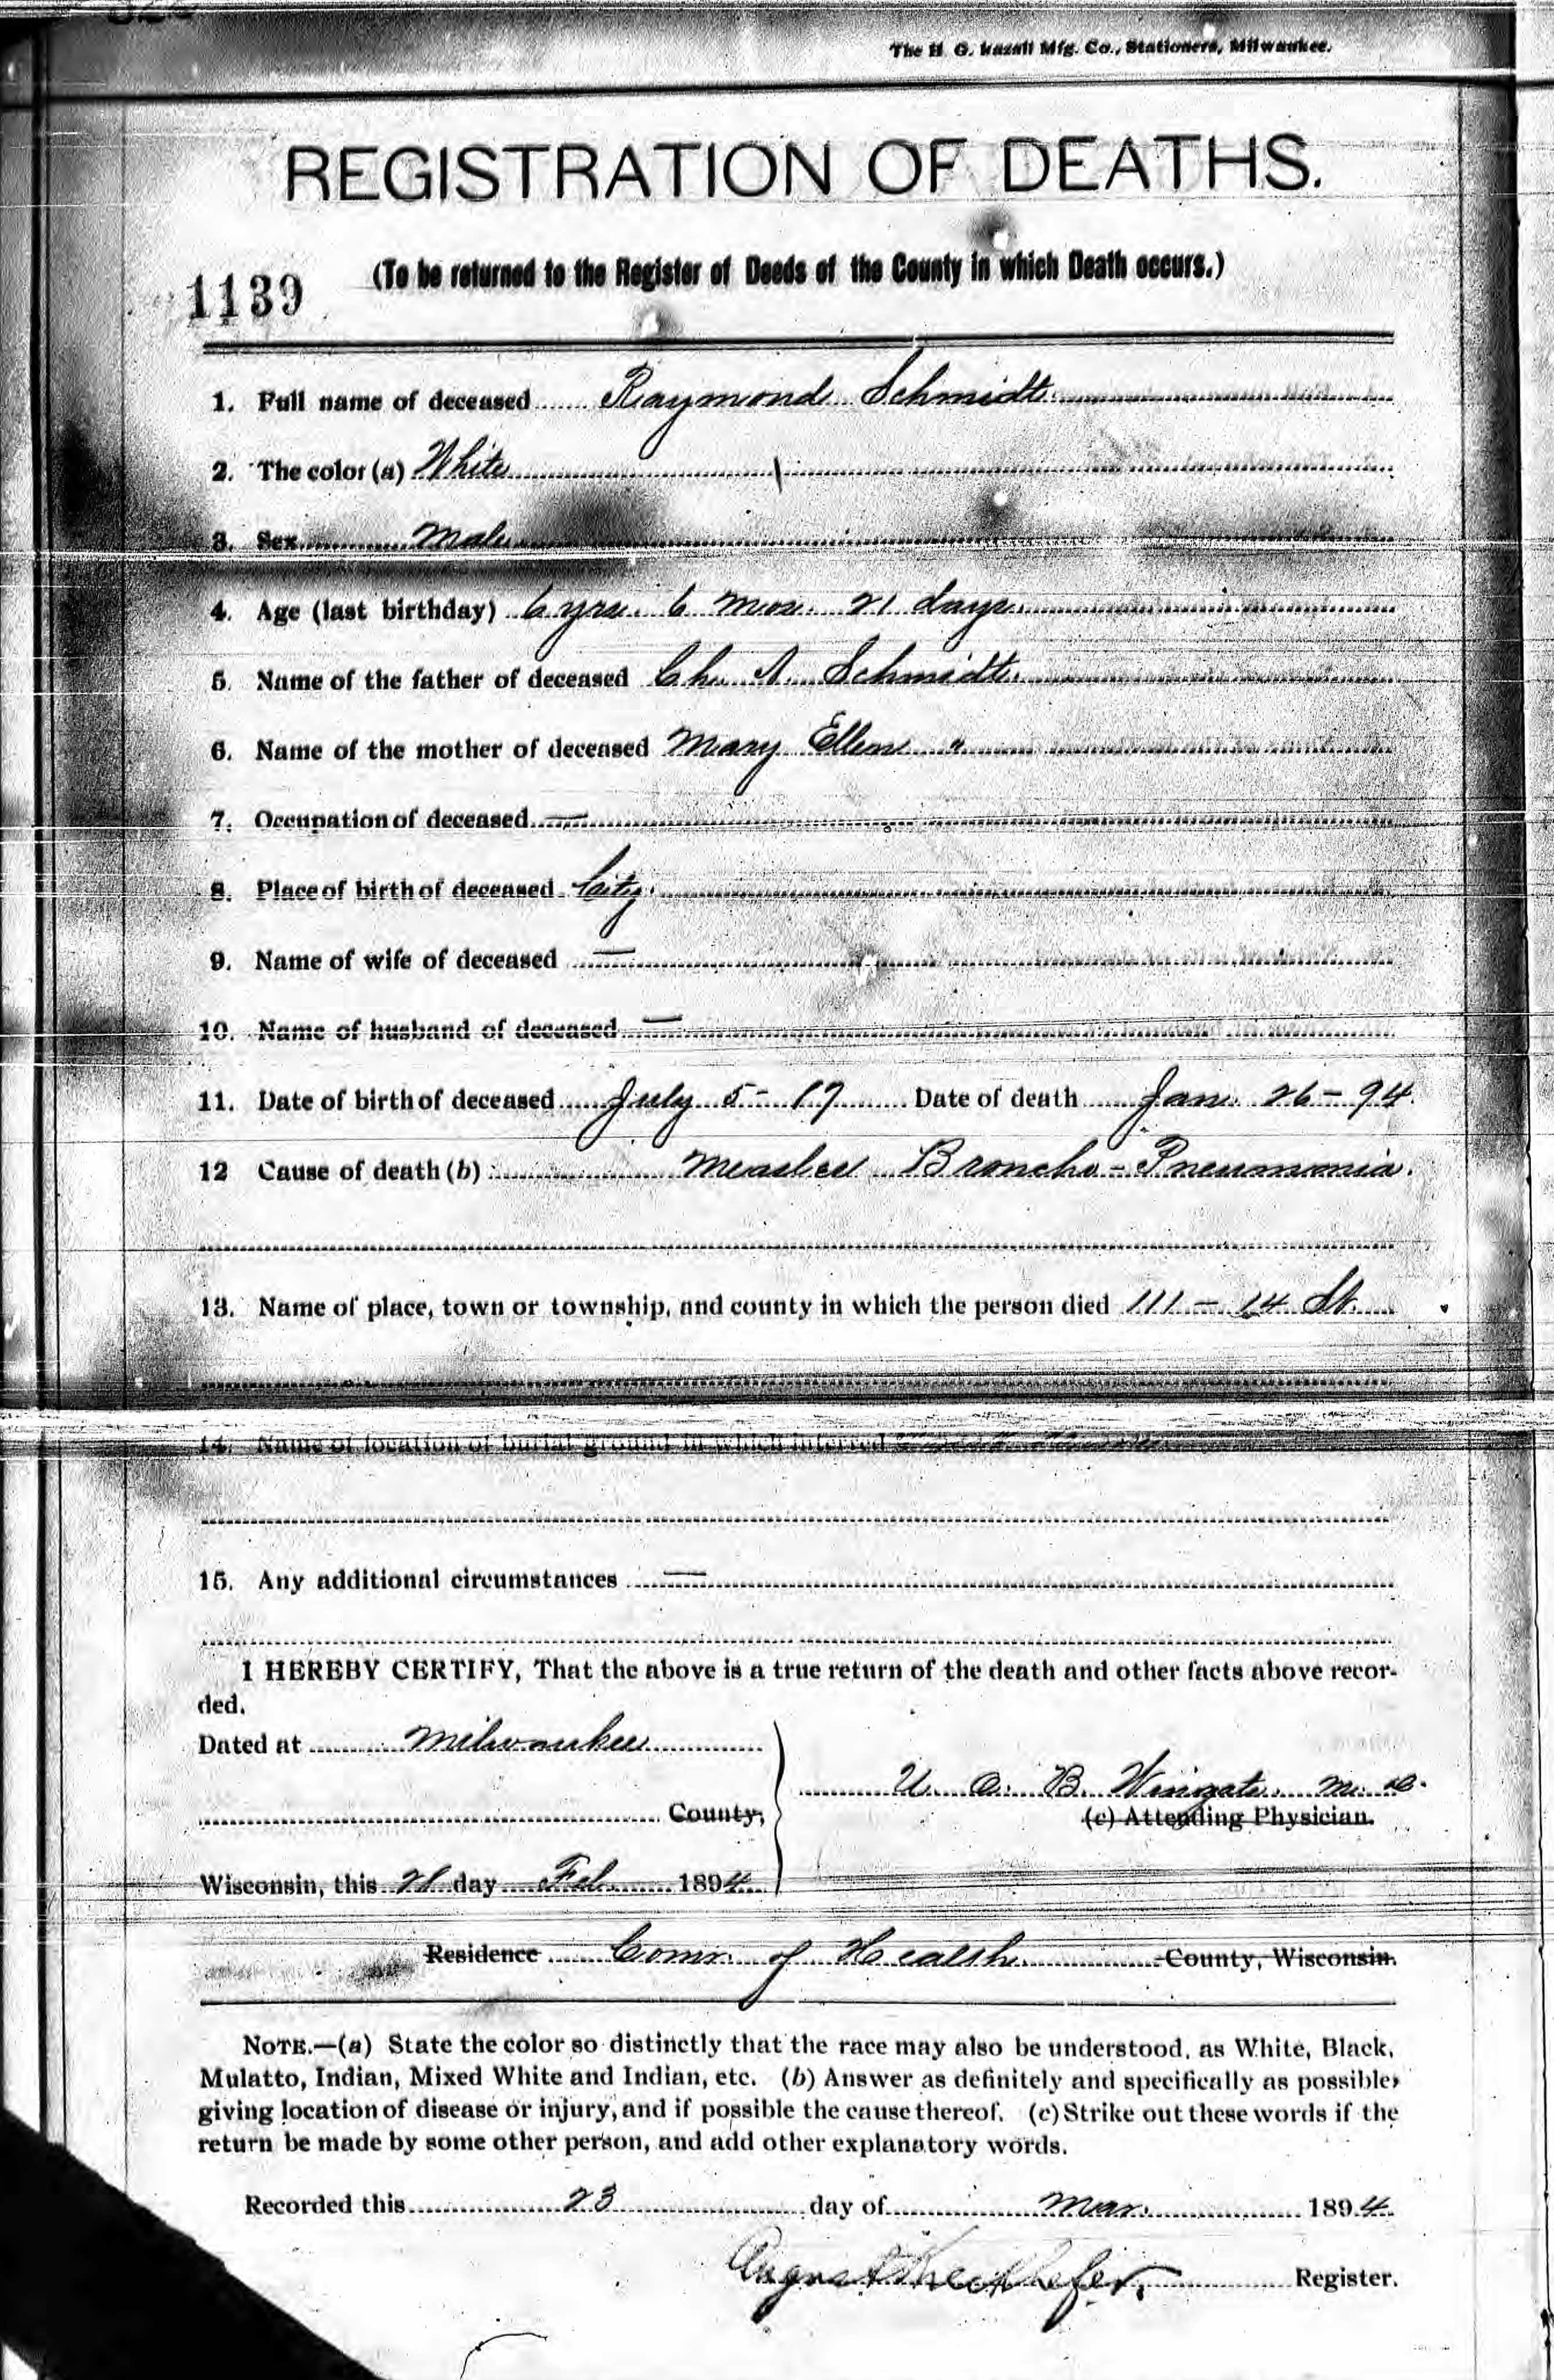 The H. G. Razall Mfg. Co., Stationers, Milwaukee.
REGISTRATION OF DEATHS.
(To be returned to the Register of Deeds of the County in which Death occurs.)
1139
1. Full name of deceased Raymond Schmidt
2. The color (a) White
3. Sex Male
4. Age (last birthday) 6 yrs. 6 mos. 21 days
5. Name of the father of deceased Ch. A. Schmidt
6. Name of the mother of deceased Mary Ellen "
7. Occupation of deceased —
8. Place of birth of deceased City
9. Name of wife of deceased —
10. Name of husband of deceased —
11. Date of birth of deceased July 5 - 87 Date of death Jan. 26 - 94.
12 Cause of death (b) Measles Broncho-Pneumonia.
13. Name of place, town or township, and county in which the person died 111 - 14 St.
14. Name of location of burial ground in which interred
15. Any additional circumstances —
I HEREBY CERTIFY, That the above is a true return of the death and other facts above recor-
ded.
Dated at Milwaukee
U. O. B. Wingate. M. D.
County,
(c) Attending Physician.
Wisconsin, this 21 day Feb. 1894
Residence Comr. of Health County, Wisconsin.
NOTE.—(a) State the color so distinctly that the race may also be understood, as White, Black,
Mulatto, Indian, Mixed White and Indian, etc. (b) Answer as definitely and specifically as possible,
giving location of disease or injury, and if possible the cause thereof. (c) Strike out these words if the
return be made by some other person, and add other explanatory words.
Recorded this 23 day of Mar. 1894
August Rieckhefer, Register.